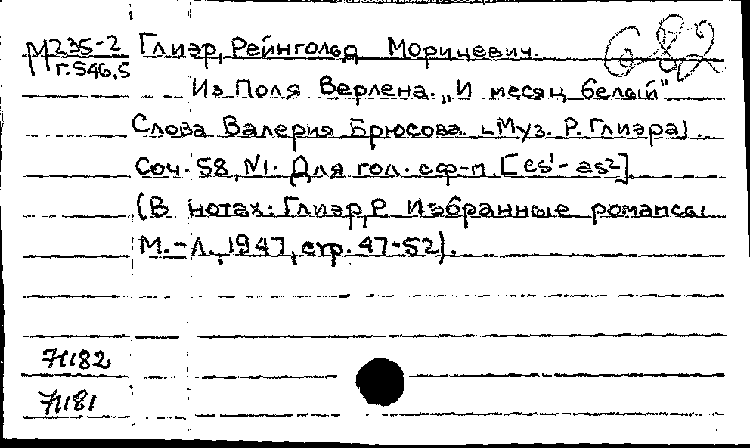 М 235-2 Глиэр, Рейнгольд Морицевич. 682
г.546,5
Из Поля Верлена. „И месяц белый"
Слова Валерия Брюсова. [Муз. Р. Глиэра]
Соч. 58, №1. Для гол. с ф-п [es¹-as²]
(В нотах: Глиэр, Р. Избранные романсы
М.-Л., 1947, стр. 47-52).
71182
71181